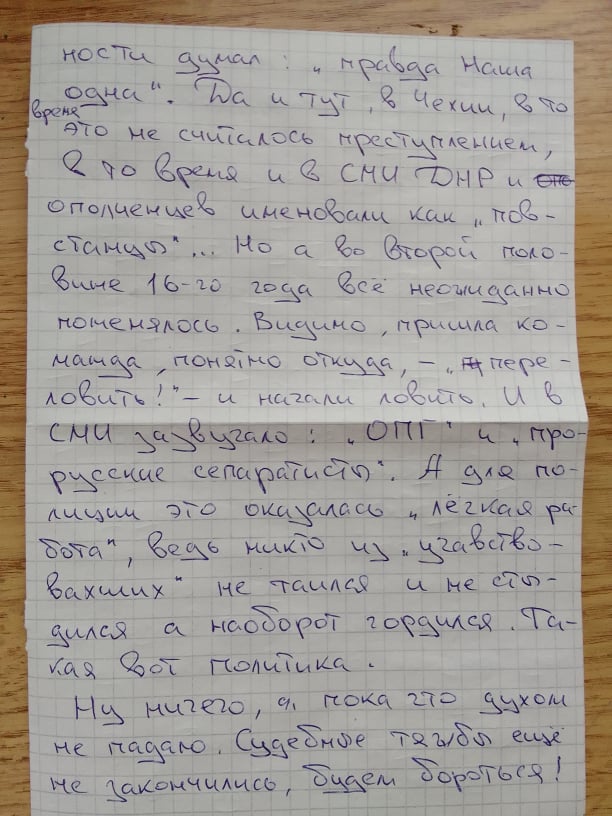 ности думал: „правда Наша
одна“. Да и тут, в Чехии, в то
время
это не считалось преступлением,
в то время и в СМИ ДНР и
ополченцев именовали как „пов-
станцы“... Но а во второй поло-
вине 16-го года всё неожиданно
поменялось. Видимо, пришла ко-
манда, понятно откуда, – „пере-
ловить!“ – и начали ловить. И в
СМИ зазвучало: „ОПГ“ и „про-
русские сепаратисты“. А для по-
лиции это оказалась „лёгкая ра-
бота“, ведь никто из „учавство-
вахших“ не таился и не сты-
дился а наоборот гордился. Та-
кая вот политика.
Ну ничего, я пока что духом
не падаю. Судебные тяжбы ещё
не закончились, будем бороться!